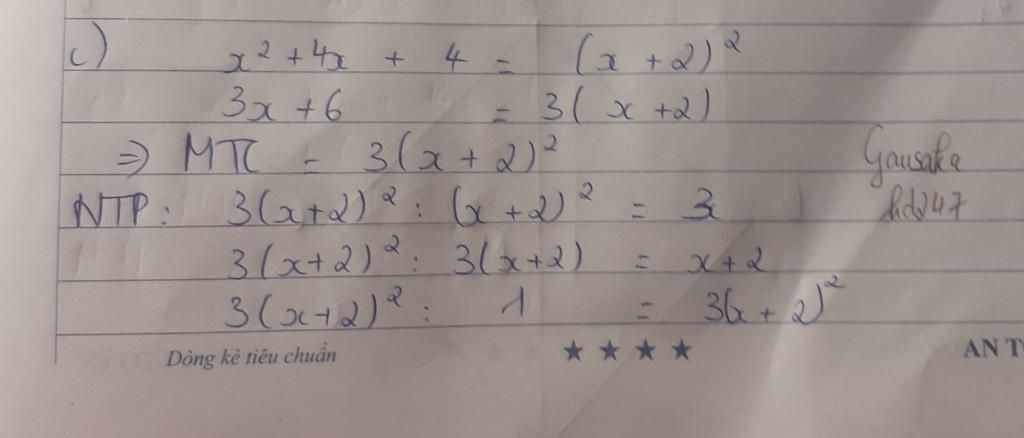 c) x² + 4x + 4 = (x + 2)²
3x + 6 = 3(x + 2)
⇒ MTC = 3(x + 2)²
Gausaka
hd247
NTP: 3(x+2)² : (x+2)² = 3
3(x+2)² : 3(x+2) = x+2
3(x+2)² : 1 = 3(x+2)²
Dòng kẻ tiêu chuẩn ★ ★ ★ ★ AN T